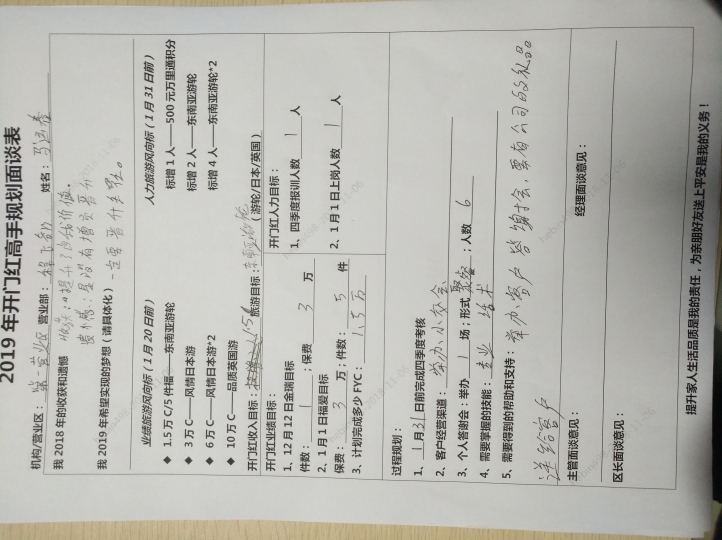 2019年开门红高手规划面谈表
机构/营业区：第一营业区 营业部： 姓名：
我2018年的收获和遗憾 收获：提升了自我价值。
遗憾：是没有增员晋升
我2019年希望实现的梦想（请具体化）一定要晋升主任。
业绩旅游风向标（1月20日前） 人力旅游风向标（1月31日前）
◆ 1.5万C/5件福——东南亚游轮 标增1人——500元万里通积分
◆ 3万C——风情日本游 标增2人——东南亚游轮
◆ 6万C——风情日本游*2 标增4人——东南亚游轮*2
◆ 10万C——品质英国游
开门红收入目标： 1.5万 旅游目标：东南亚游轮（游轮/日本/英国）
开门红业绩目标： 开门红人力目标：
1、12月12日金瑞目标 1、四季度报训人数 1 人
件数： 1 ；保费 3 万
2、1月1日福爱目标 2、1月1日上岗人数 1 人
保费： 3 万；件数： 5 件
3、计划完成多少FYC： 1.5万
过程规划：
1、1月31日前完成四季度考核
2、客户经营渠道：举办小交会
3、个人答谢会：举办 1 场；形式 聚餐 ；人数 6
4、需要掌握的技能：专业 话术
5、需要得到的帮助和支持：举办客户答谢会要有公司的礼品
送给客户
主管面谈意见： 经理面谈意见：
区长面谈意见：
提升家人生活品质是我的责任，为亲朋好友送上平安是我的义务！